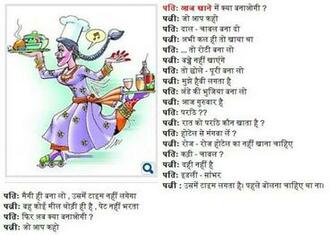 पति: आज खाने में क्या बनाओगी ?
पत्नी: जो आप कहो
पति: दाल - चावल बना दो
पत्नी: अभी कल ही तो खाया था
पति: ... तो रोटी बना लो
पत्नी: बच्चे नहीं खाएंगे
पति: तो छोले - पूरी बना लो
पत्नी: मुझे हैवी लगता है
पति: अंडे की भुजिया बना लो
पत्नी: आज गुरुवार है
पति: परांठे ??
पत्नी: रात को परांठे कौन खाता है ?
पति: होटेल से मंगवा लें ?
पत्नी: रोज - रोज होटेल का नहीं खाना चाहिए
पति: कढ़ी - चावल ?
पत्नी: दही नहीं है
पति: इडली - सांभर
पत्नी : उसमें टाइम लगता है। पहले बोलना चाहिए था ना।
पति: मैगी ही बना लो , उसमें टाइम नहीं लगेगा
पत्नी: वह कोई मील थोड़ी ही है , पेट नहीं भरता
पति: फिर अब क्या बनाओगी ?
पत्नी: जो आप कहो